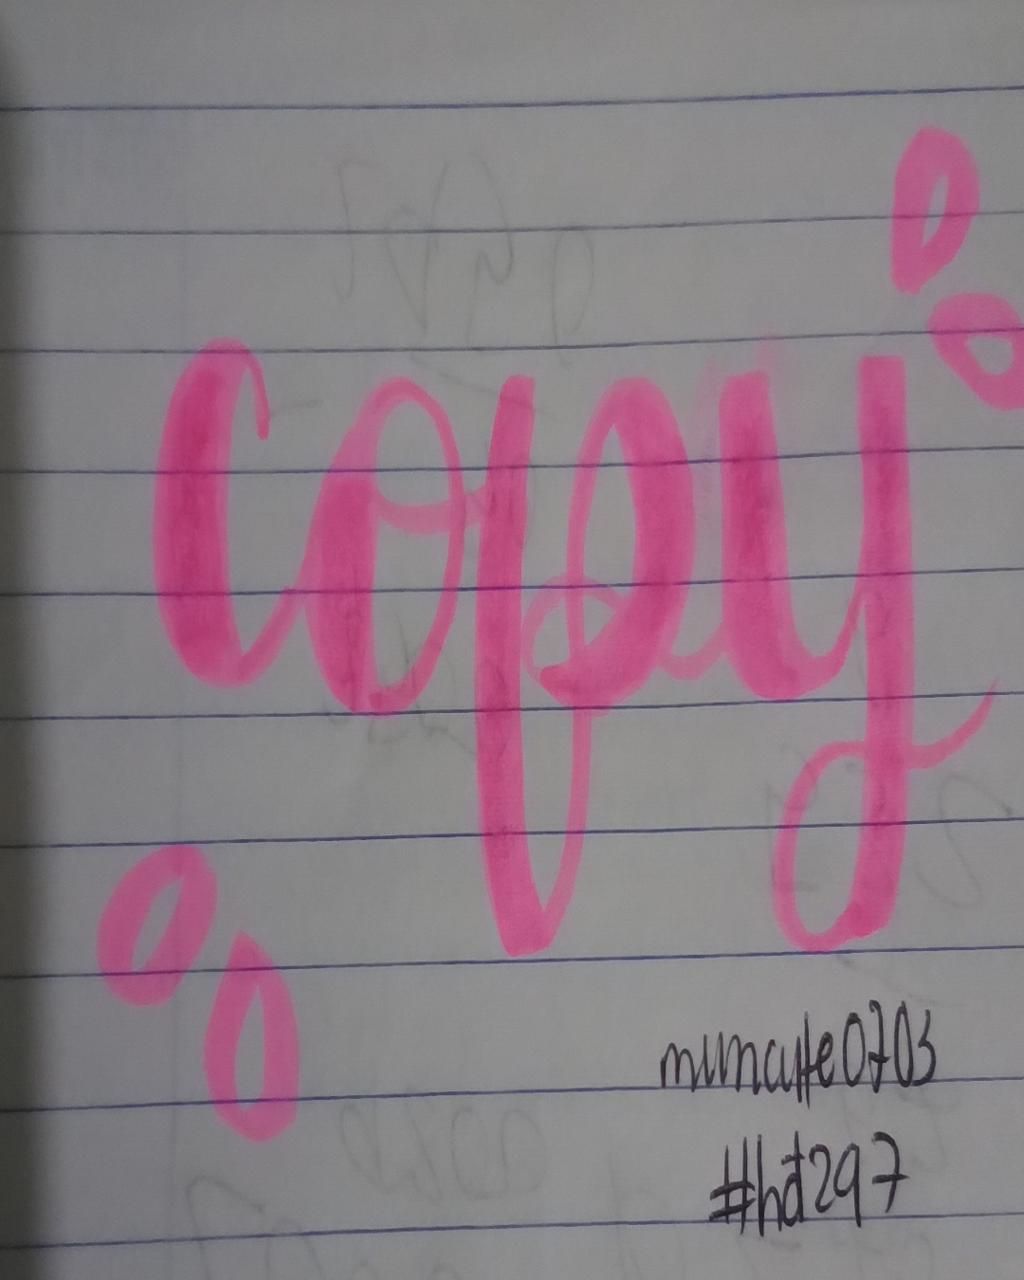 copy
mimcutte0703
#hđ297